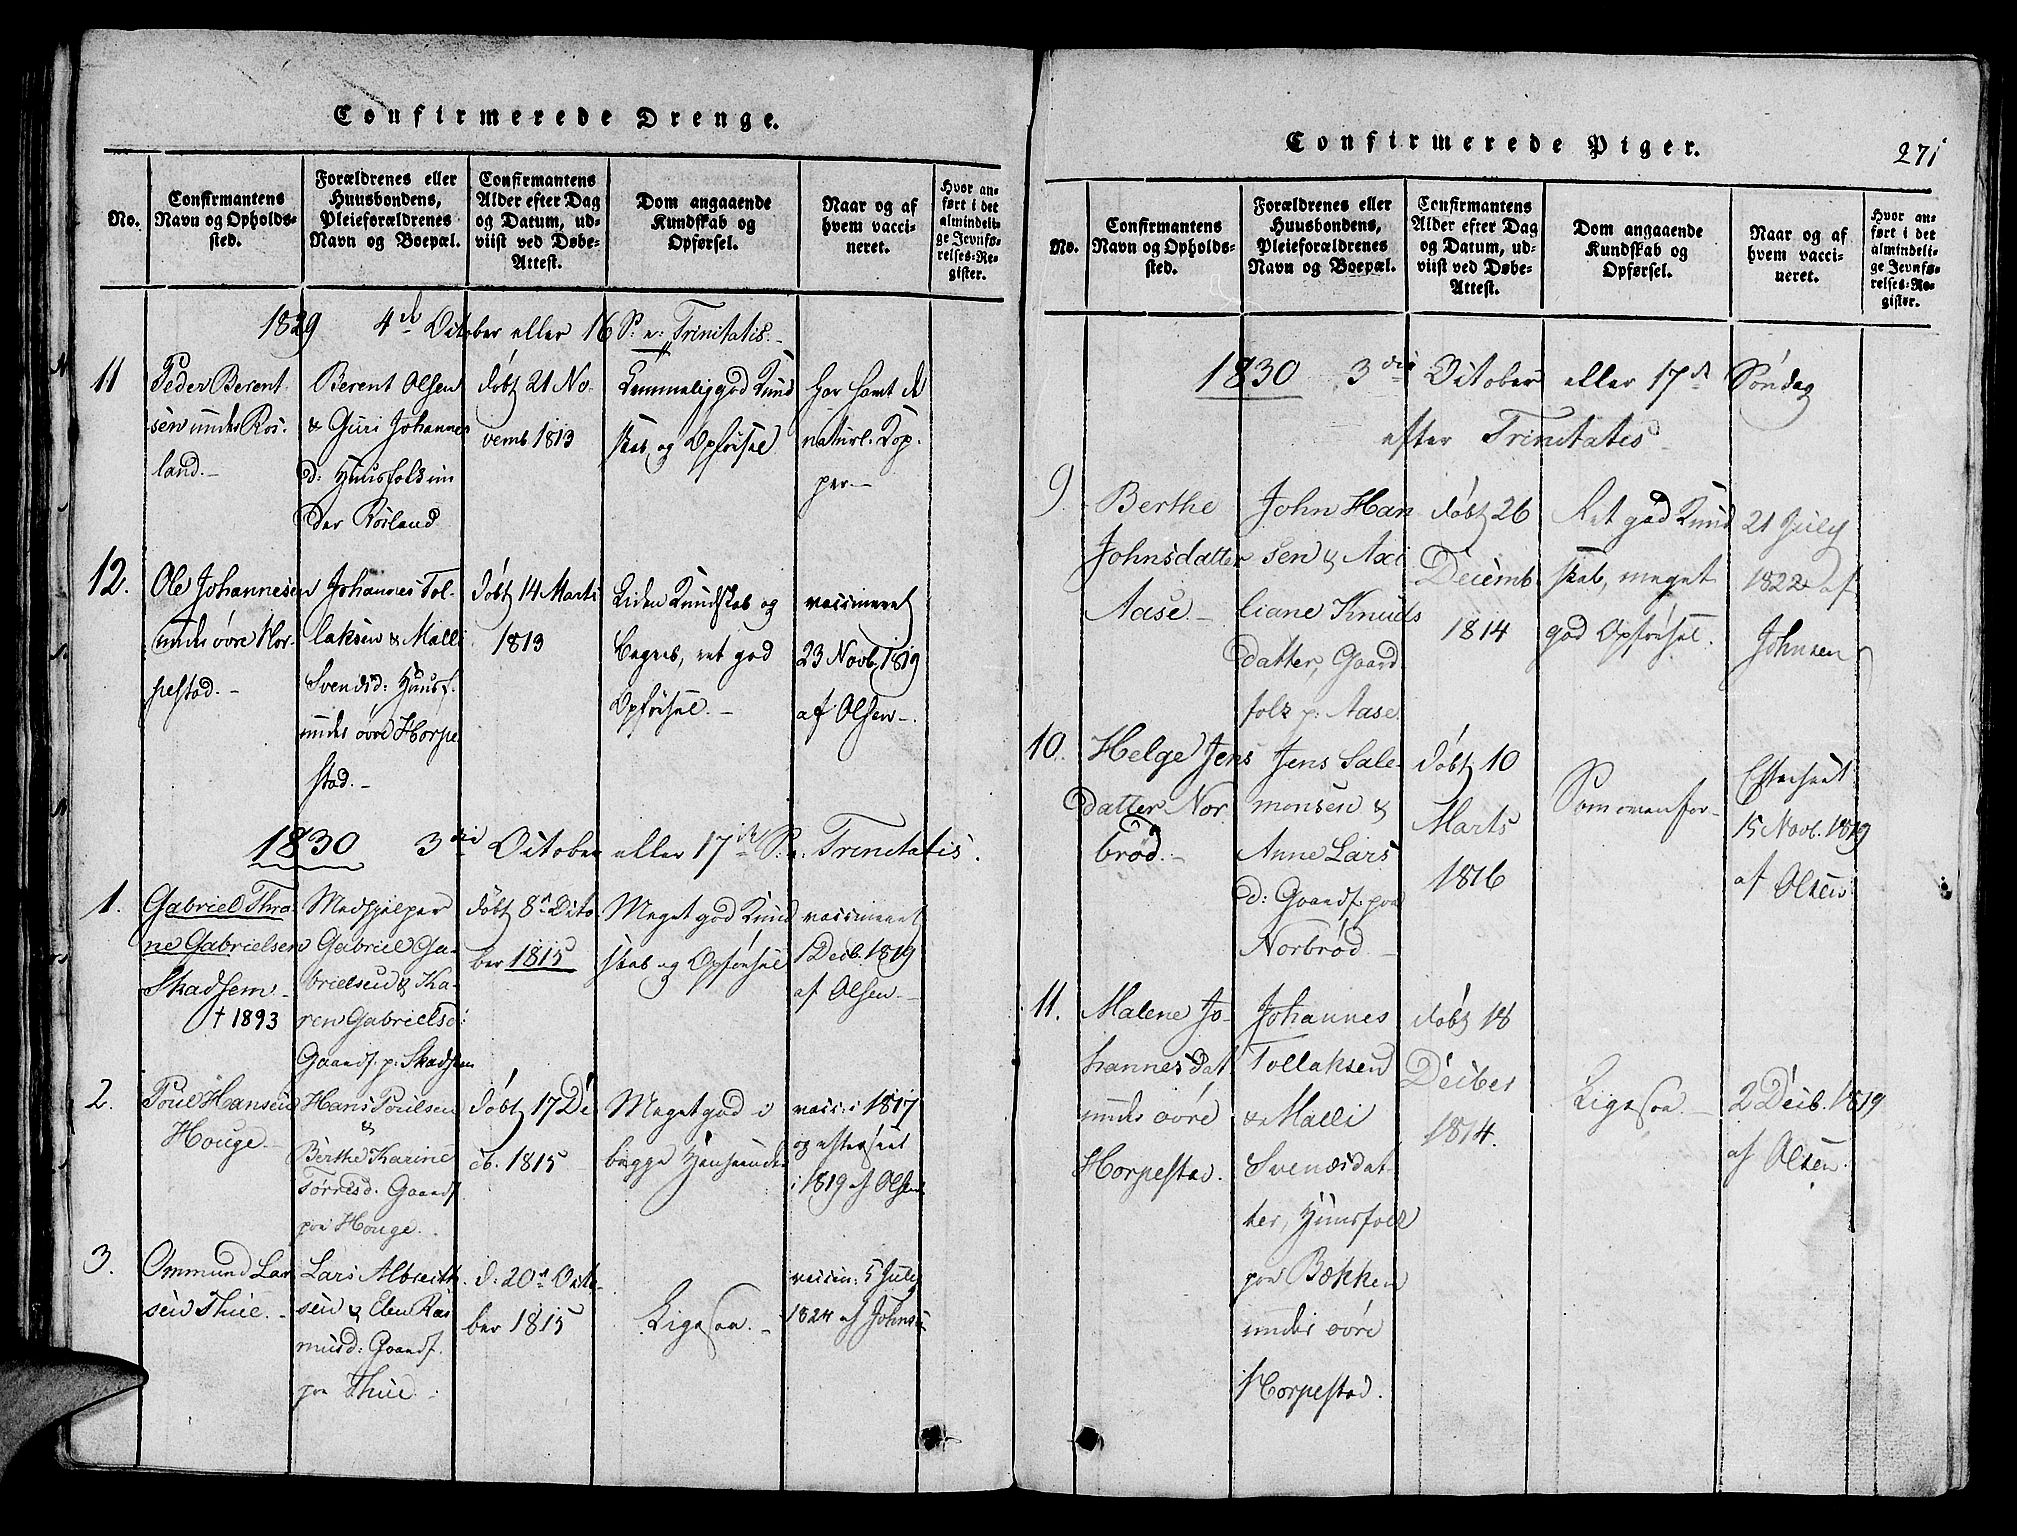 Confirmerede Drenge.
No.
Confirmantens
Navn og Opholds-
sted.
Forældrenes eller
Huusbondens,
Pleieforældrenes
Navn og Boepæl.
Confirmantens
Alder efter Dag
og Datum, ud-
viist ved Døbe-
Attest.
Dom angaaende
Kundskab og
Opførsel.
Naar og af
hvem vacci-
neret.
Hvor an-
ført i det
almindeli-
ge Jevnfø-
relses-Re-
gister.
1829 4de October eller 16 S: e: Trinitatis.
11
Peder Berent
sen under Ros-
land.
Berent Olsen
& Guri Johannes
d: Huusfolk un
der Rosland
døbt 21 No-
vemb 1813
Temmelig god Kund
skab og Opførsel
har havt de
naturl: Kop-
per
12.
Ole Johannesen
under øvre Hor-
pestad.
Johannes Tol-
laksen & Malli
Svendsd: Huusf.
under øvre Horpe-
stad.
døbt 14 Marti
1813
Liden Kundskab og
Begreb, ret god
Opførsel.
vaccineret
23 Novb. 1819
af Olsen.
1830 3die October eller 17de S: e: Trinitatis.
1.
Gabriel Thra
ne Gabrielsen
Skadsem
† 1893
Medhjelper
Gabriel Ga-
brielsen & Ka-
ren Gabrielsd:
Gaardf. p. Skadsem
døbt 8de Octo
ber 1815
Meget god Kund
skab og Opførsel
vaccineret
1 Decb. 1819
af Olsen.
2.
Poul Hansen
Houge.
Hans Poulsen
&
Berthe Karine
Torresd. Gaardf
paa Houge.
døbt 17 De
cb. 1815
Meget god i
begge Henseender
vacc: i 1817
og efterseet
i 1819 af Olsen
3.
Ommund Lar
sen Thue.
Lars Albreith
sen & Elen Ras
musd: Gaardf.
paa Thue.
d: 20de Octo-
ber 1815
Ligesaa.
vaccin: 5 July
1824 af Johnsen
Confirmerede Piger.
271
No.
Confirmantens
Navn og Opholds-
sted.
Forældrenes eller
Huusbondens,
Pleieforældrenes
Navn og Boepæl.
Confirmantens
Alder efter Dag
og Datum, ud-
viist ved Døbe-
Attest.
Dom angaaende
Kundskab og
Opførsel.
Naar og af
hvem vacci-
neret.
Hvor an-
ført i det
almindeli-
ge Jevnfø-
relses-Re-
gister.
1830 3die October eller 17de Søndag
efter Trinitatis
9
Berthe
Johnsdatter
Aase.
John Han
sen & Axi
liane Knuds
datter, Gaard
folk p: Aase.
døbt 26
Decemb
1814
Ret god Kund
skab, meget
god Opførsel.
21 July
1822 af
Johnsen
10.
Helge Jens
datter Nor
brød.
Jens Sale-
monsen &
Anne Lars
d: Gaardf. paa
Norbrød
døbt 10
Marts
1816
Som ovenfor
Efterseet
15 Novb. 1819
af Olsen
11.
Malene Jo-
hannesdat
under øvre
Horpestad.
Johannes
Tollaksen
& Malli
Svendsdat
ter, Huusfolk
paa Bækken
under øvre
Horpestad.
døbt 18
Decber
1814.
Ligesaa.
2 Decb. 1819
af Olsen.